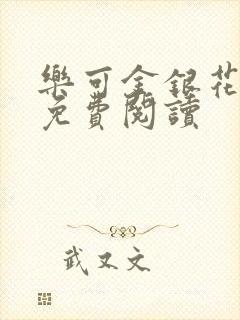 樂可金銀花
免費閱讀
武又文